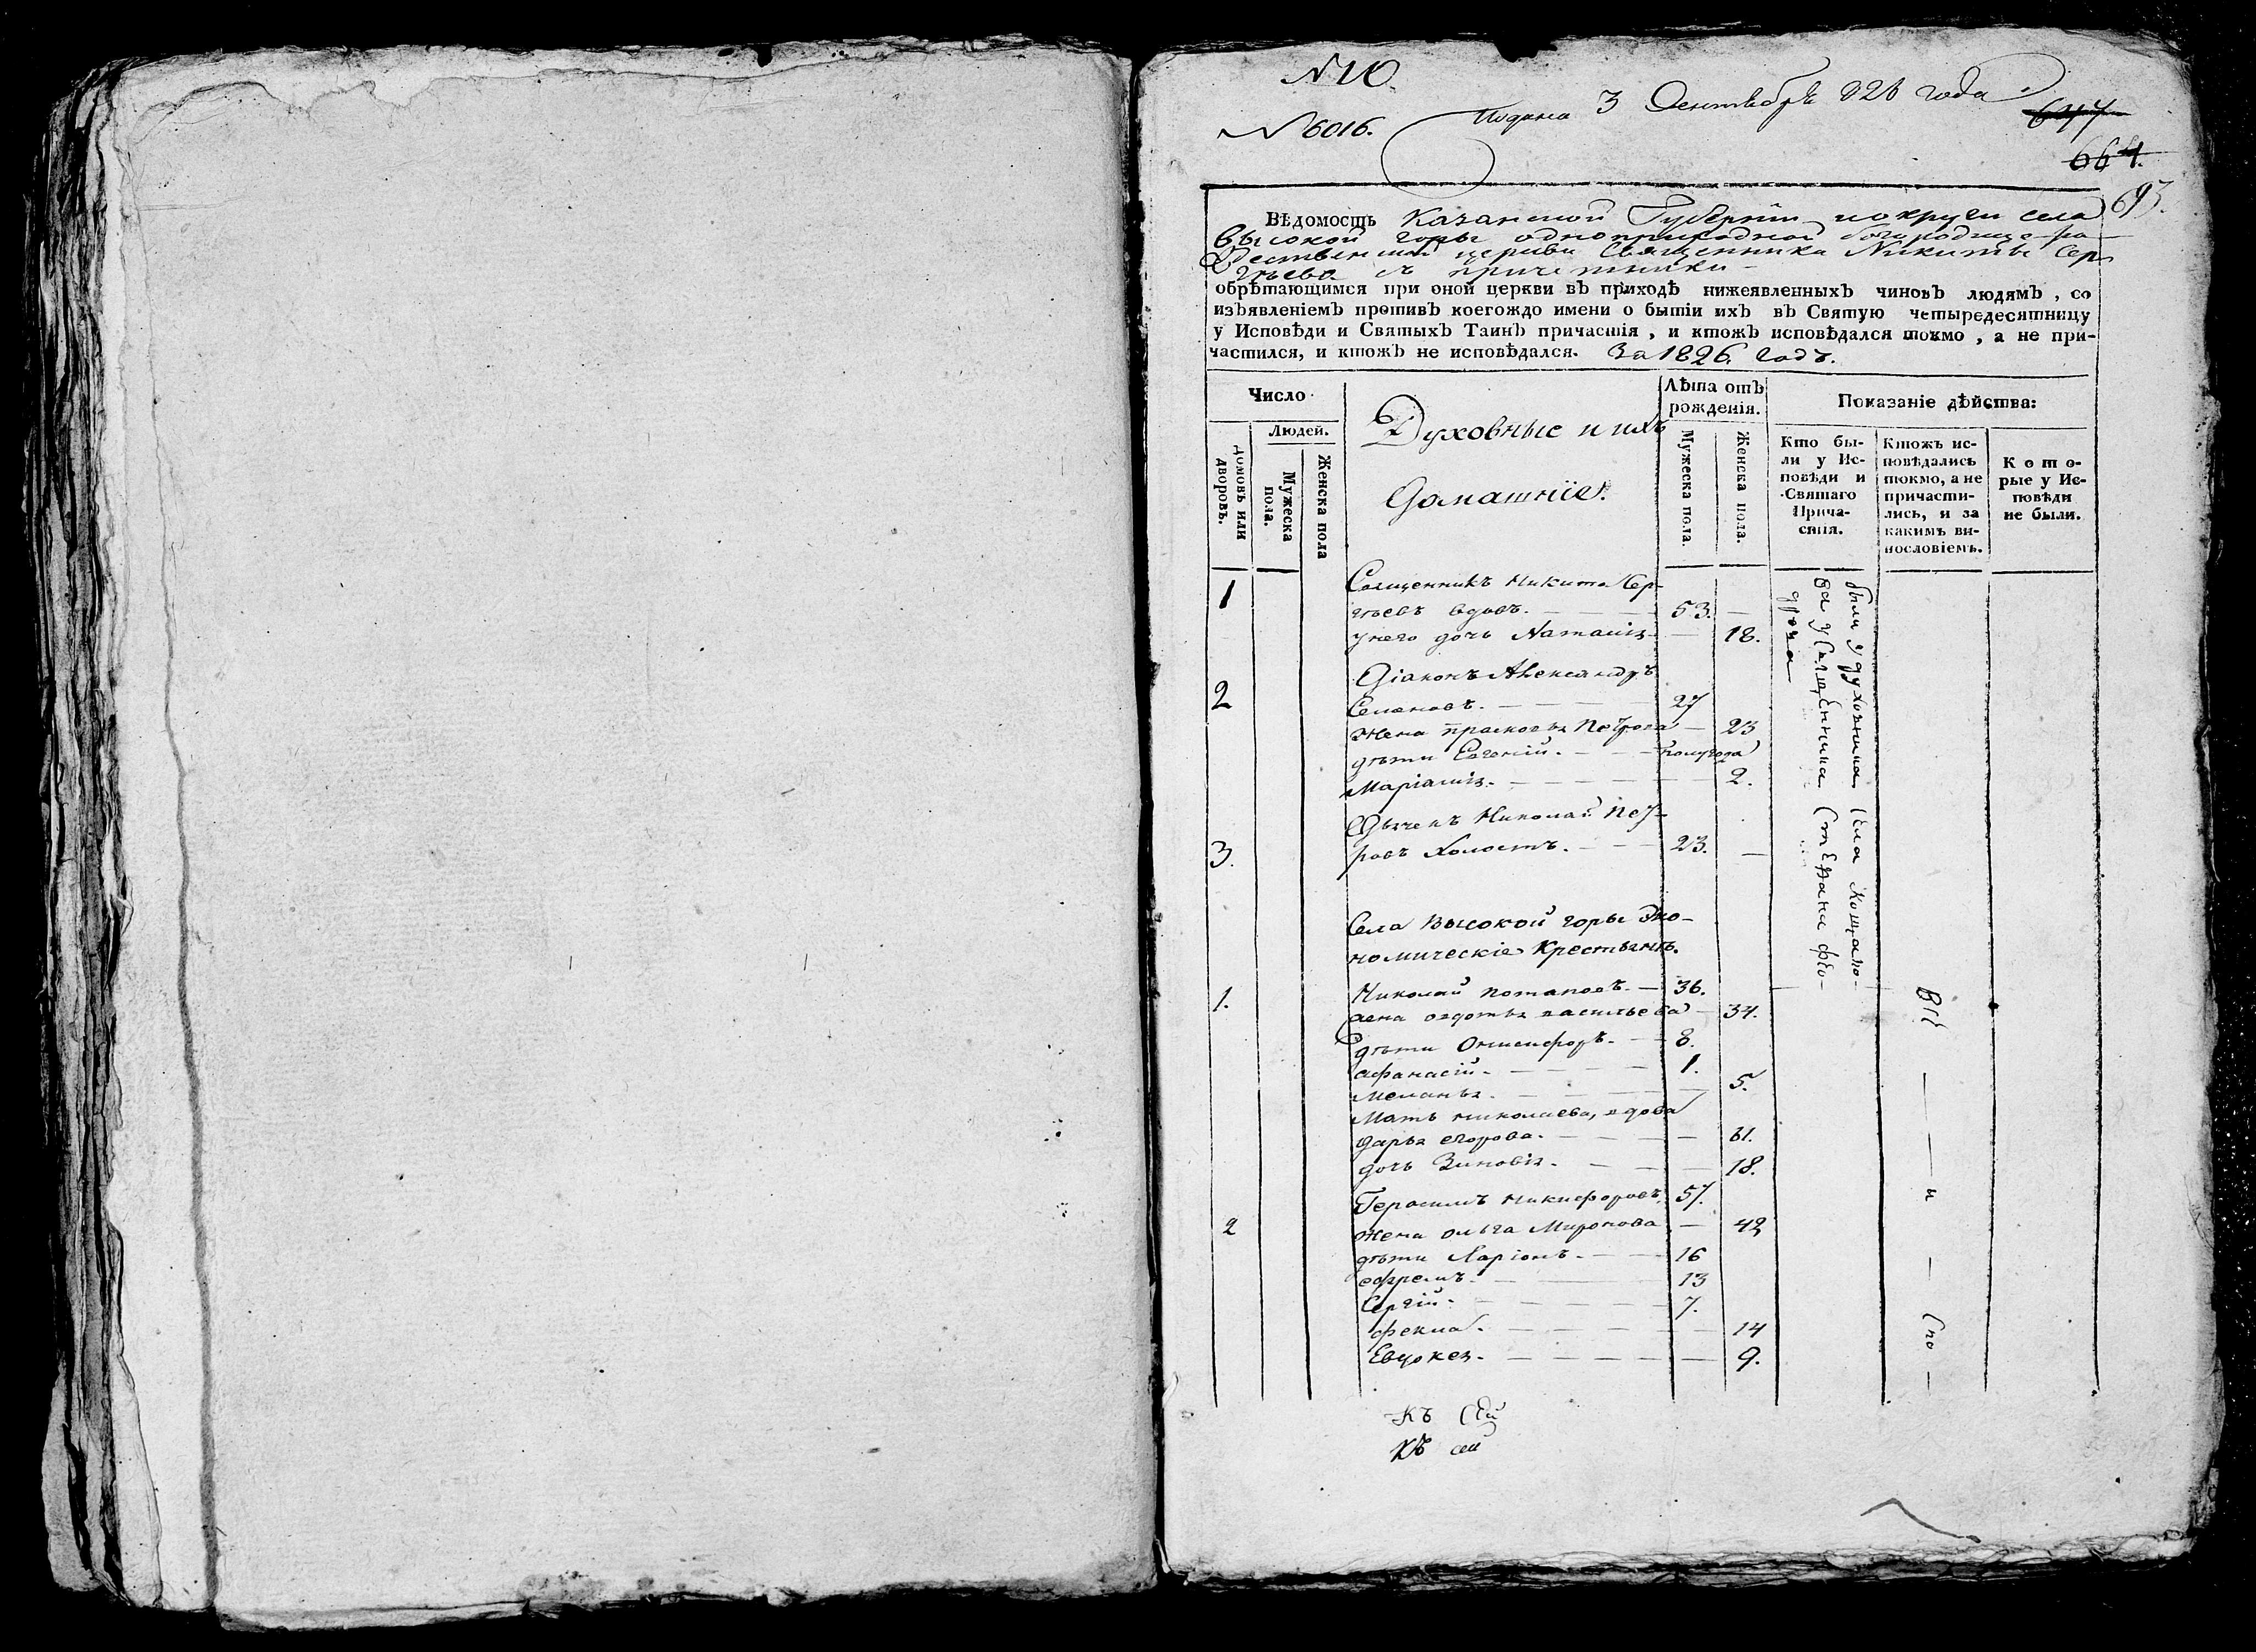 № 10.
№ 6016.
Подана 3 Сентебрѣ 826 года
664.
693.
Вѣдомость Казанской Губерніи и округи села
Высокой горы одноприходной богородице ро
дественской церкви Священника Никиты Сер
гѣева съ причетники
обрѣтающимся при оной церкви въ приходѣ нижеявленныхъ чиновъ людямъ, со
изъявленіемъ противъ коегождо имени о бытіи ихъ въ Святую четыредесятницу
у Исповѣди и Святыхъ Таинъ причастія, и ктожъ исповѣдался токмо, а не при-
частился, и ктожъ не исповѣдался. За 1826 годъ.
Число
Людей.
Домовъ или дворовъ.
Мужеска пола.
Женска пола
Духовные и ихъ
домашніе.
Лѣта отъ
рожденія.
Мужеска пола.
Женска пола.
Показаніе дѣйства:
Кто бы-
ли у Ис-
повѣди и
Святаго
Прича-
стія.
Ктожъ ис-
повѣдались
токмо, а не
причасти-
лись, и за
какимъ ви-
нословіемъ.
Кото-
рые у Ис-
повѣди
не были.
1 Священникъ Никита Сер-
гѣевъ вдовъ. 53. —
у него дочь Наталія — 18.
2 Діаконъ Александръ
Семеновъ. 27
жена Прасковья Петрова — 23
дѣти Евгеній. полугода
Маріамія. — 2.
3. Дьячекъ Николай Пет-
ровъ холостъ. 23. —
были у духовника села
ва у Священника Стефана Фео-
дрова
Села Высокой горы Эко-
номическіе Крестьянѣ.
1. Николай Потаповъ. 36.
жена авдотья васильева — 34.
дѣти Онисифоръ. 8.
афанасій. 1.
Меланья. — 5.
Мать николаева, вдова
дарья егорова. — 61.
дочь Зиновія. — 18.
2 Герасимъ никифоровъ 57.
жена ольга Миронова — 42
дѣти Ларіонъ. 16
ефремъ. 13
Сергій. 7.
фекла. — 14
Евдокея. — 9.
Всѣ — — и — (по —
Къ сей
Къ сей